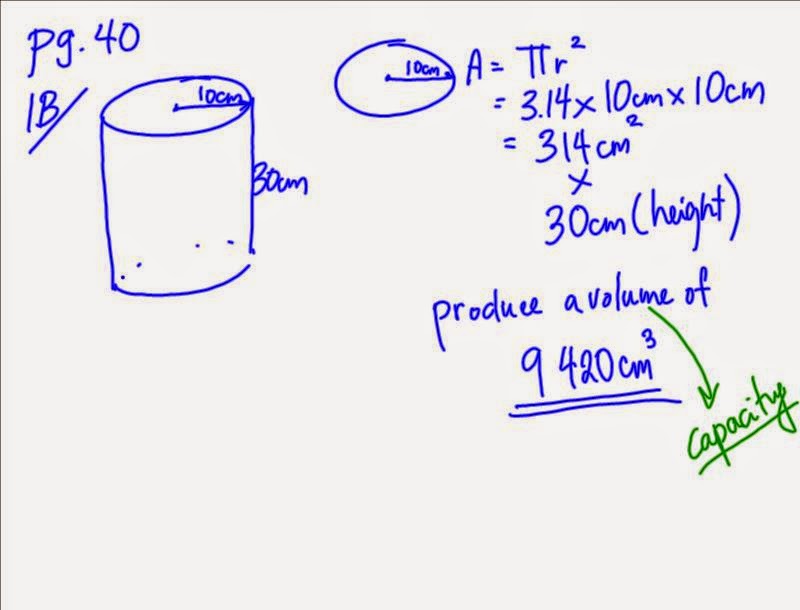 pg. 40
1B/
10cm
30cm
10cm
A = πr²
= 3.14 × 10cm × 10cm
= 314 cm²
×
30cm (height)
produce a volume of
9 420 cm³
capacity